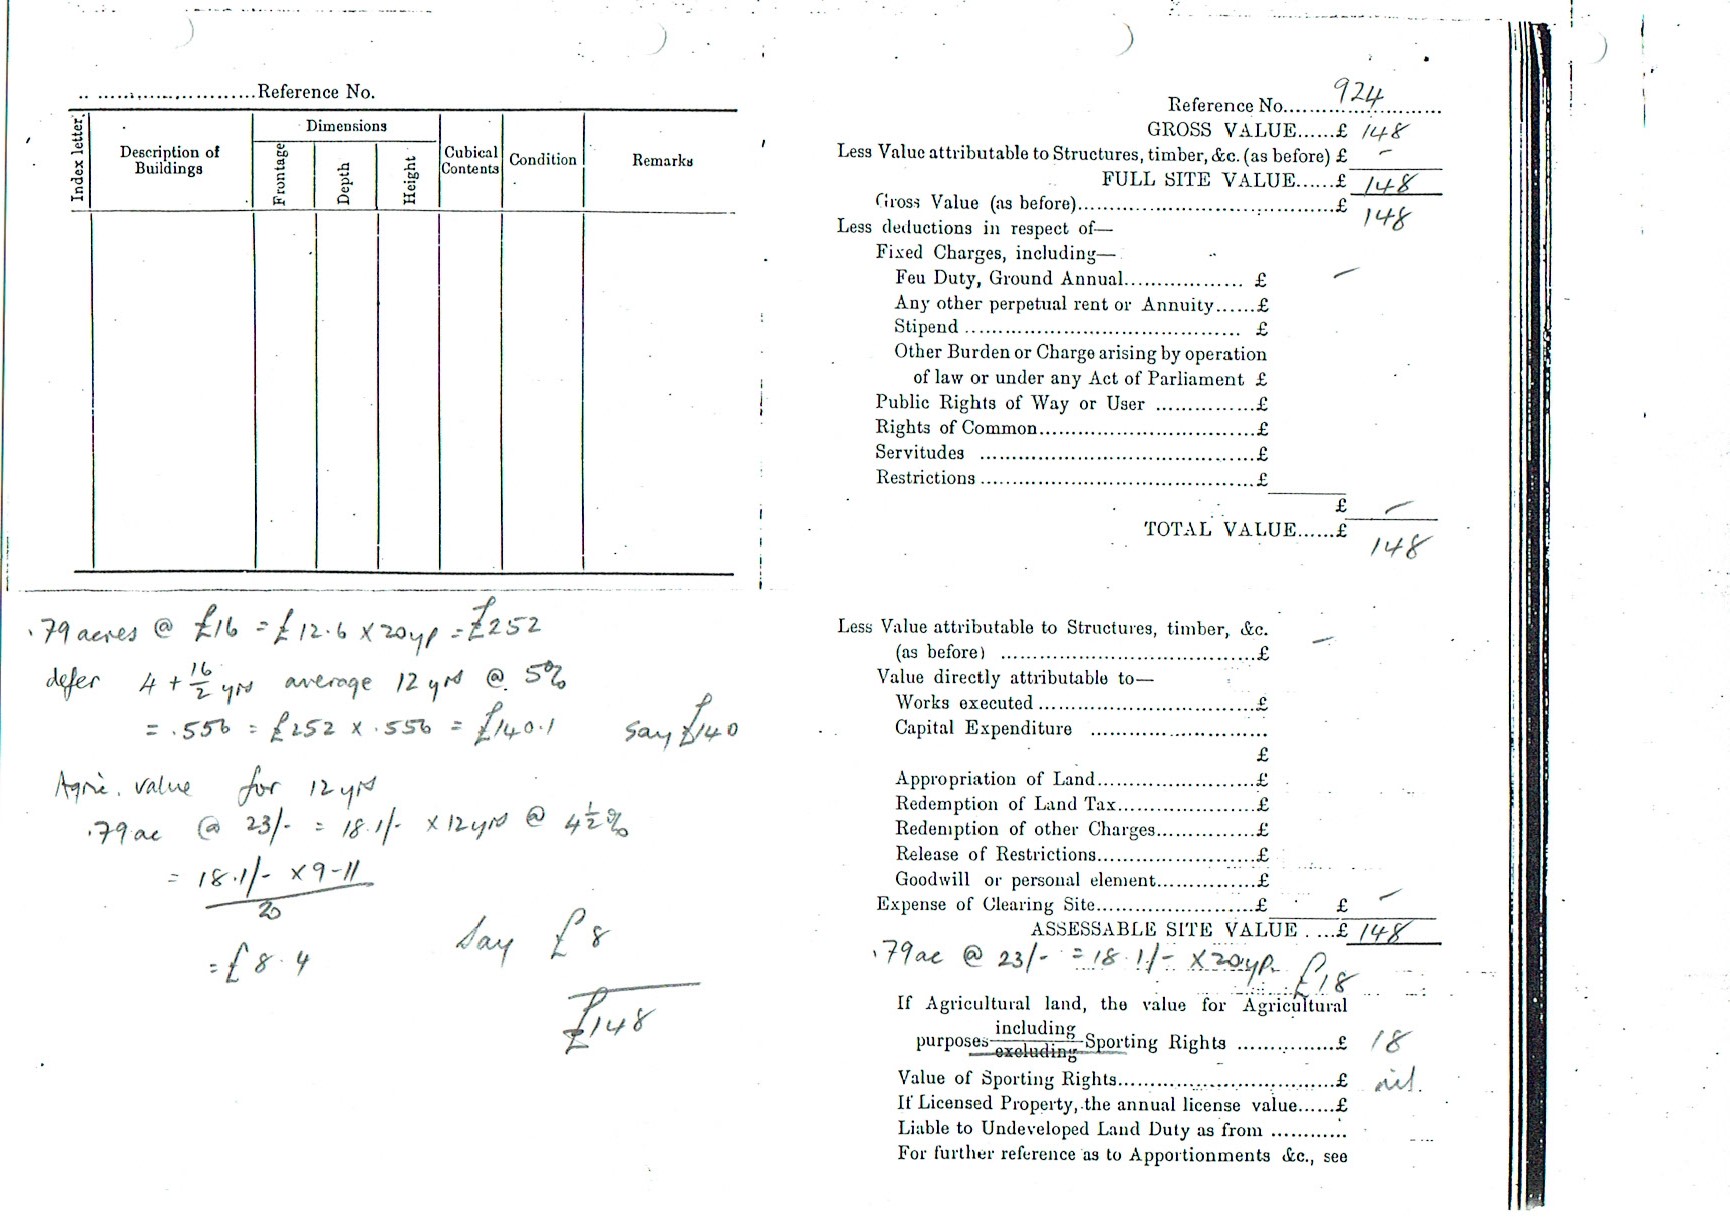 .. ............................Reference No.
Index letter.
Description of Buildings
Dimensions
Frontage
Depth
Height
Cubical Contents
Condition
Remarks
.79 acres @ £16 = £12.6 x 20 yp = £252
defer 4 + 16/2 yrs average 12 yrs @ 5%
= .556 = £252 x .556 = £140.1 say £140
Agric. value for 12 yrs
.79 ac @ 23/- = 18.1/- x 12 yrs @ 4½%
= 18.1/- x 9-11
20
= £8.4 say £8
£148
Reference No. 924
GROSS VALUE......£ 148
Less Value attributable to Structures, timber, &c. (as before) £ -
FULL SITE VALUE......£ 148
Gross Value (as before)..........................................£ 148
Less deductions in respect of—
Fixed Charges, including—
Feu Duty, Ground Annual.................. £ -
Any other perpetual rent or Annuity......£
Stipend ......................................... £
Other Burden or Charge arising by operation
of law or under any Act of Parliament £
Public Rights of Way or User ...............£
Rights of Common.................................£
Servitudes ..........................................£
Restrictions ..........................................£
£ -
TOTAL VALUE......£ 148
Less Value attributable to Structures, timber, &c. -
(as before) .......................................£
Value directly attributable to—
Works executed ..................................£
Capital Expenditure ...........................
£
Appropriation of Land..........................£
Redemption of Land Tax.......................£
Redemption of other Charges...............£
Release of Restrictions..........................£
Goodwill or personal element...............£
Expense of Clearing Site........................£ £ -
ASSESSABLE SITE VALUE . ...£ 148
.79 ac @ 23/- = 18.1/- x 20 yp. £18
If Agricultural land, the value for Agricultural
including
purposes excluding Sporting Rights ...............£ 18
Value of Sporting Rights..............................£ nil.
If Licensed Property, the annual license value......£
Liable to Undeveloped Land Duty as from ............
For further reference as to Apportionments &c., see